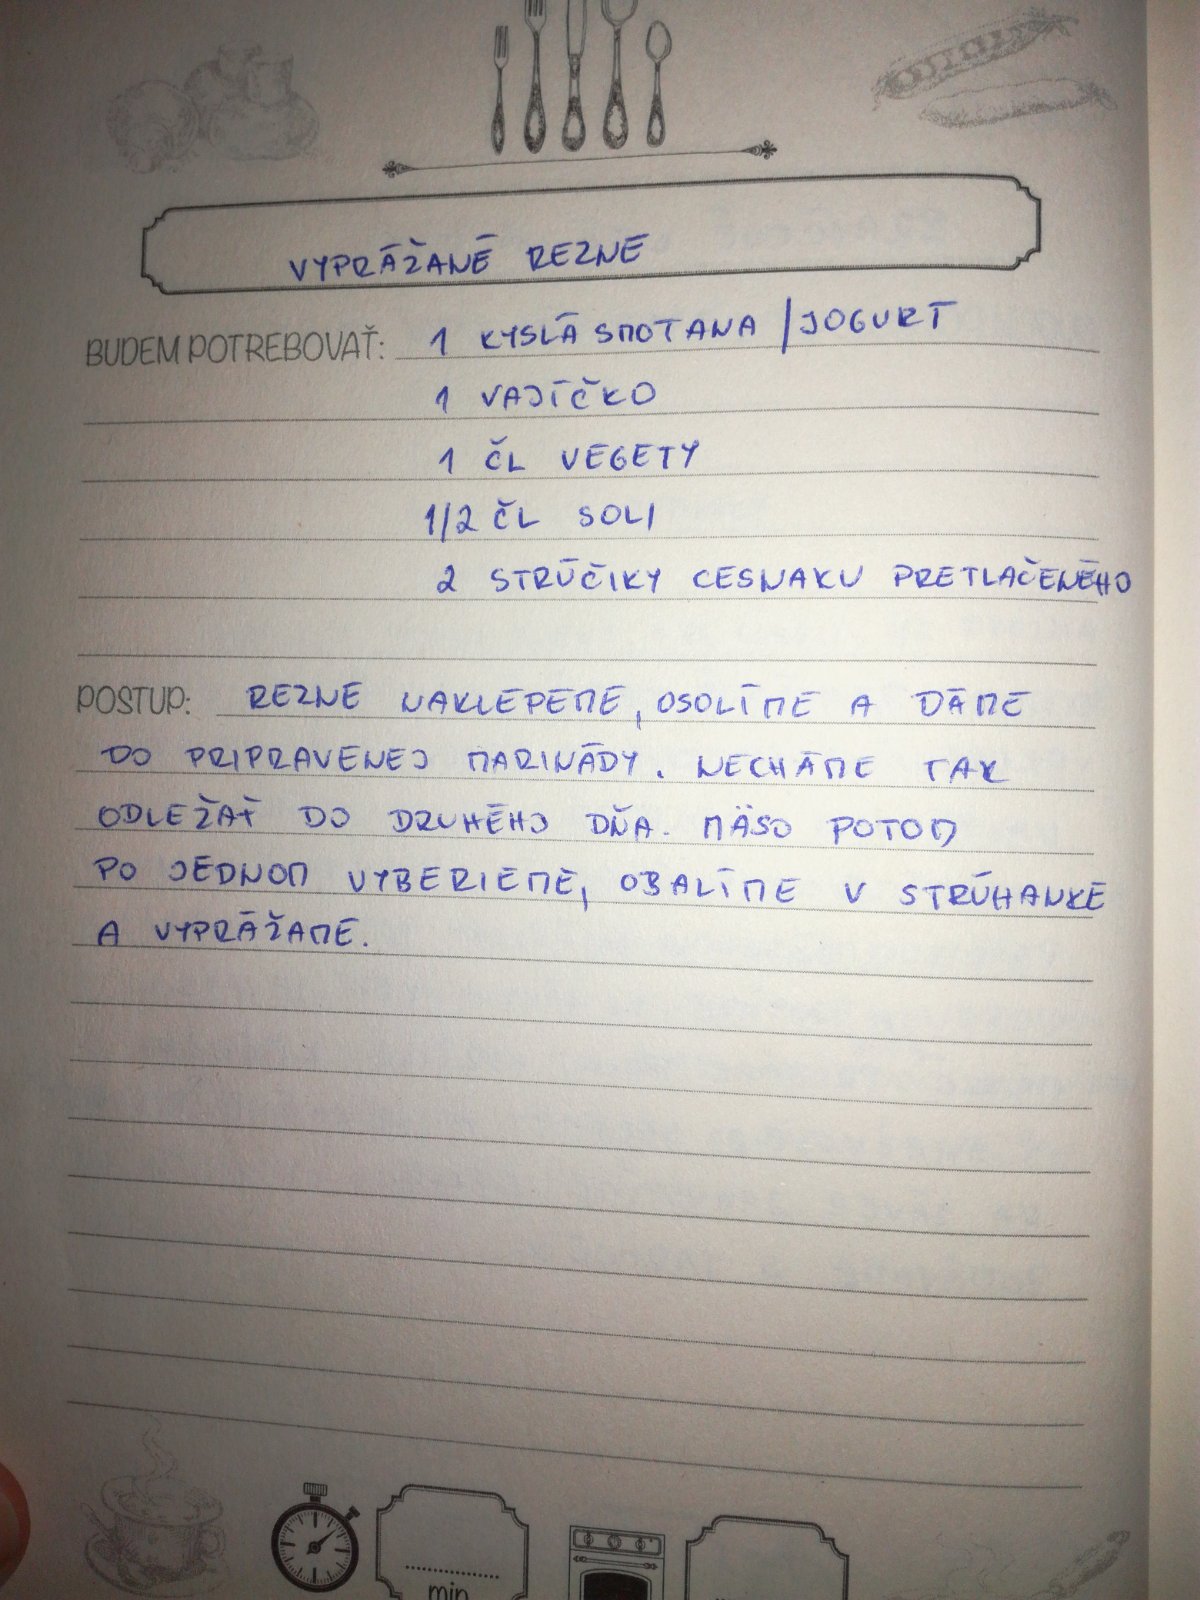 VYPRÁŽANÉ REZNE
BUDEM POTREBOVAŤ: 1 KYSLÁ SMOTANA / JOGURT
1 VAJÍČKO
1 ČL VEGETY
1/2 ČL SOLI
2 STRÚČIKY CESNAKU PRETLAČENÉHO
POSTUP: REZNE NAKLEPEME, OSOLÍME A DÁME
DO PRIPRAVENEJ MARINÁDY. NECHÁME TAK
ODLEŽAŤ DO DRUHÉHO DŇA. MÄSO POTOM
PO JEDNOM VYBERIEME, OBALÍME V STRÚHANKE
A VYPRÁŽAME.
min